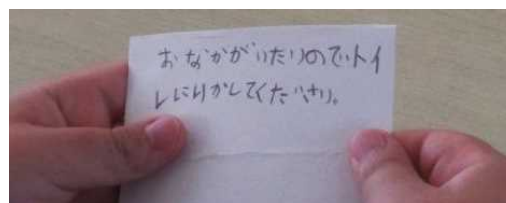 おなかがいたいのでトイ
レにいかしてください。